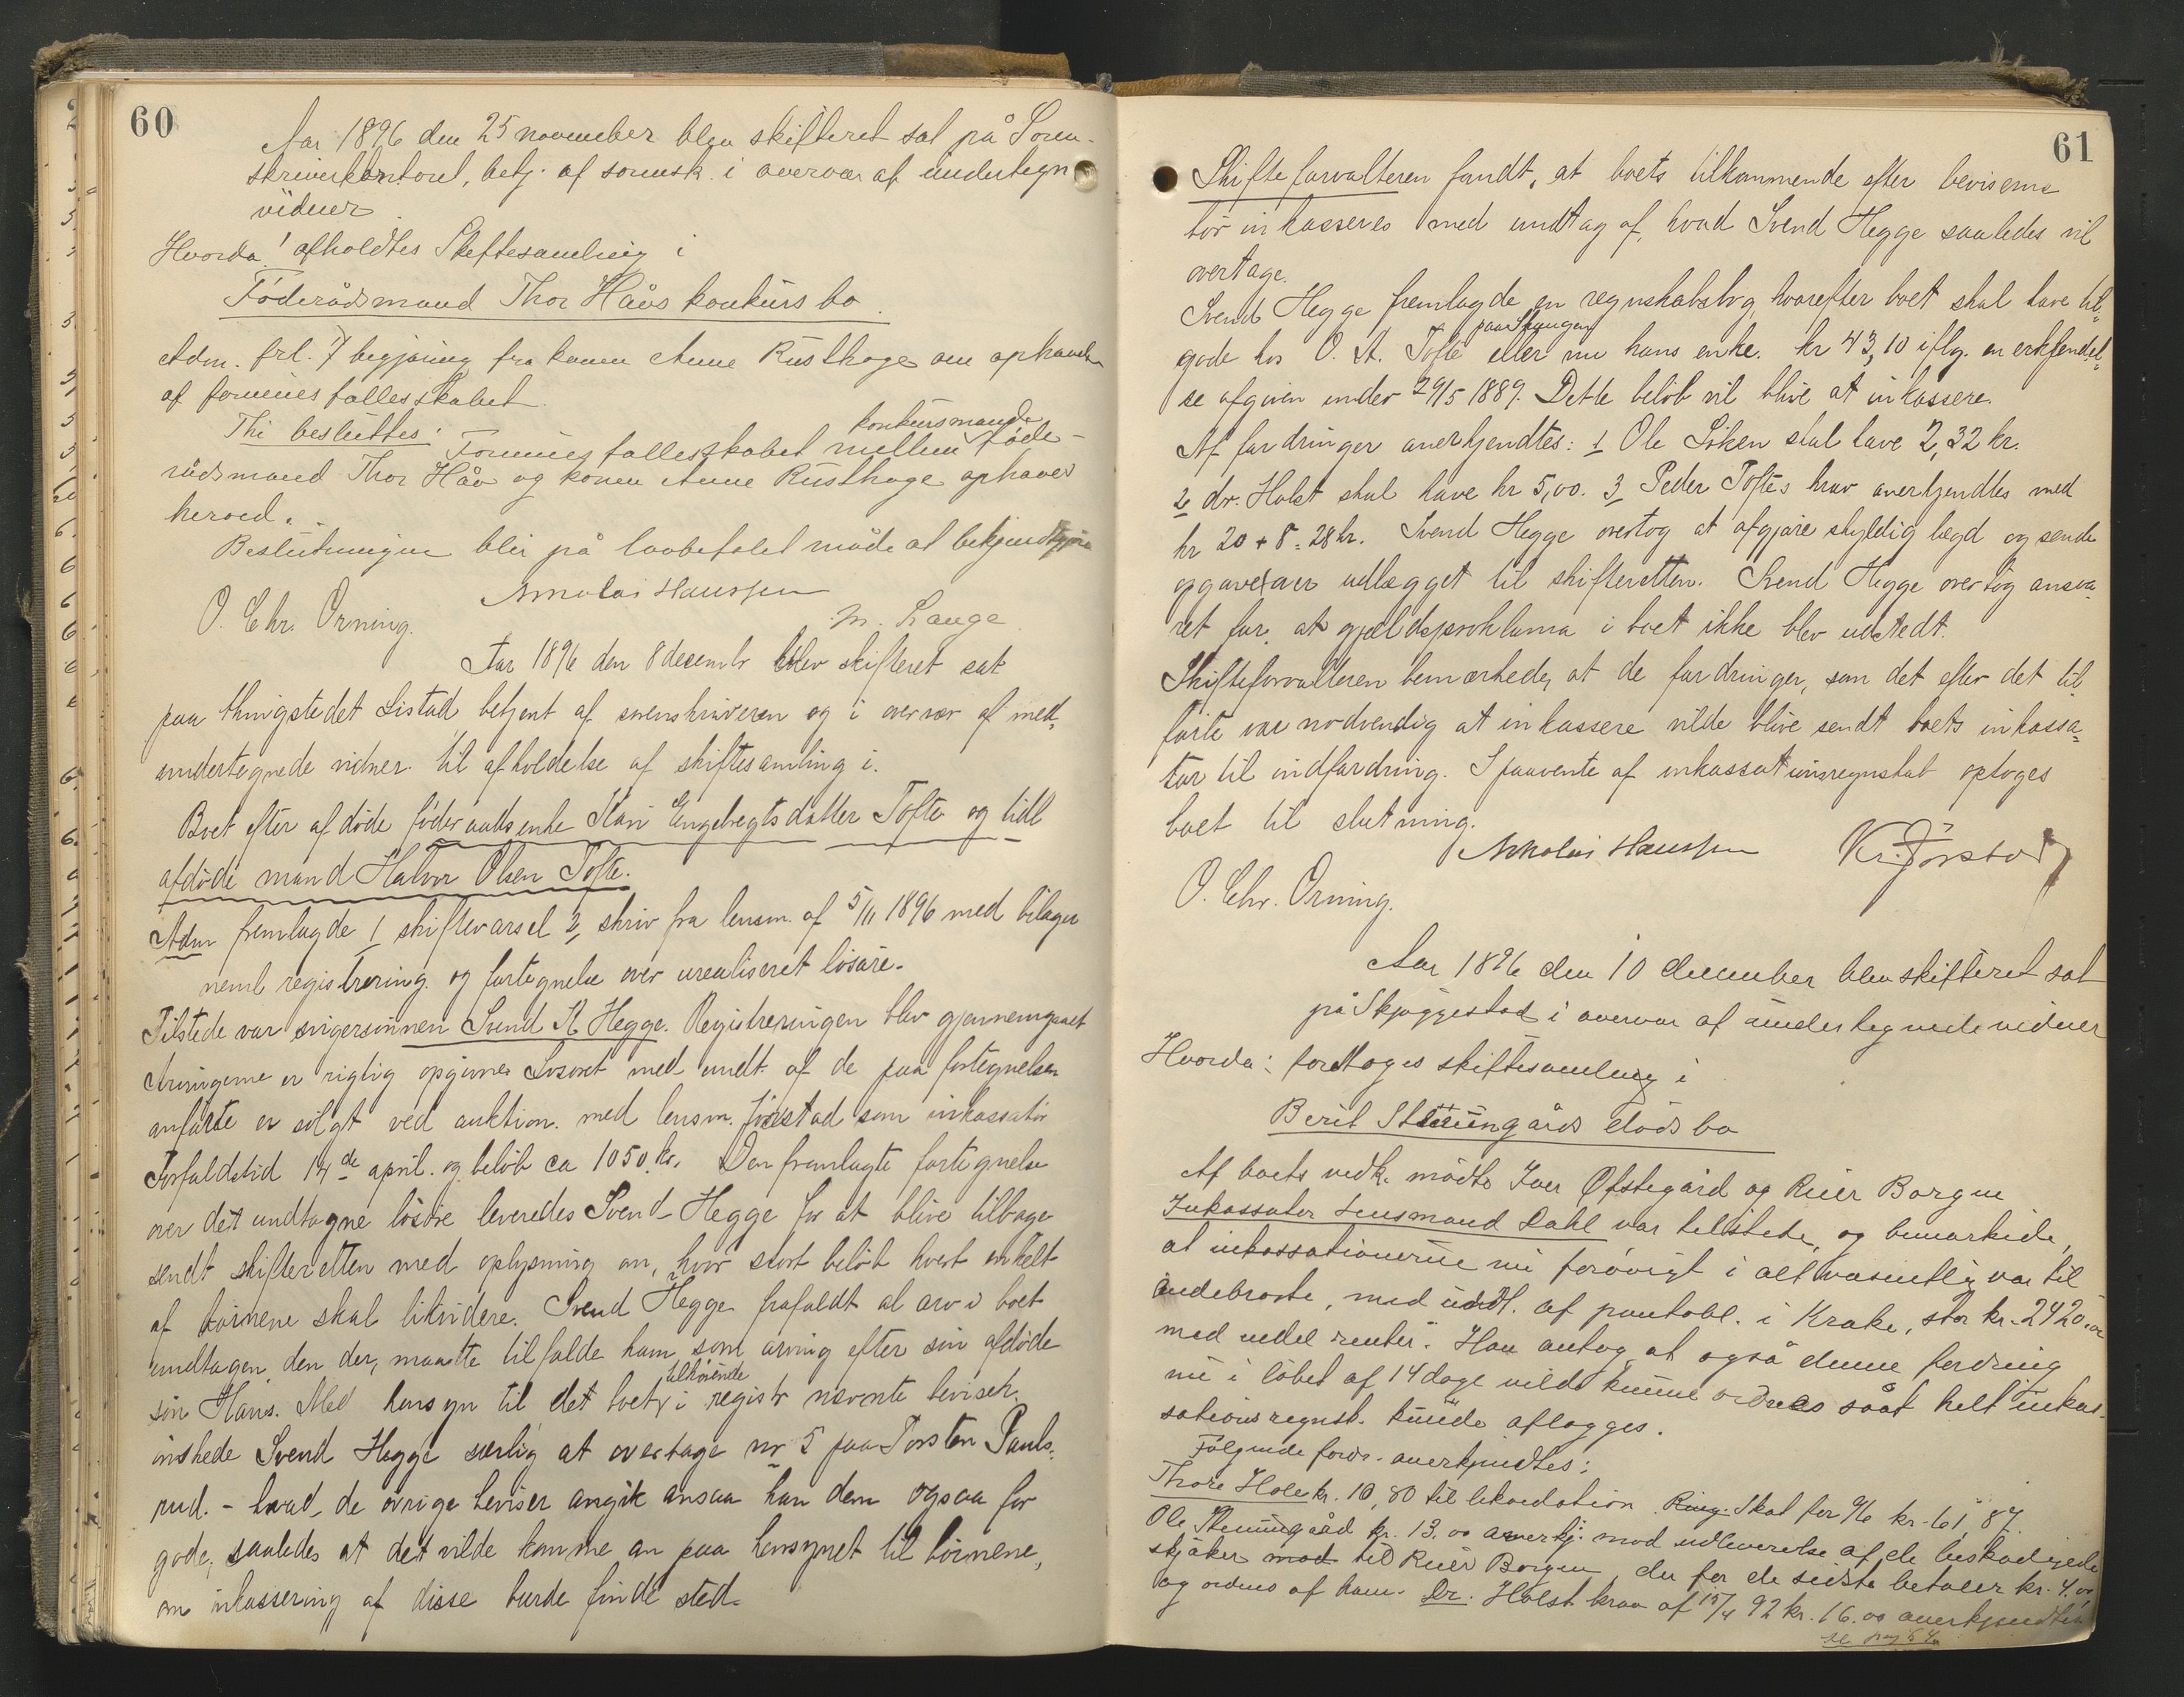 60
Aar 1896 den 25 november blev skifteret sat på Soren-
skriverkontoret, betj. af sorensk. i overvær af undertegn
vidner
Hvorda! afholdtes Skiftesamling i
Föderådsmand Thor Håvs konkurs bo.
Adm. frl. 7 begjæring fra konen Anne Rusthage om ophævelse
af formuesfællesskabet.
Thi besluttes: Formuesfællesskabet mellem konkursmande föde-
rådsmand Thor Håv og konen Anne Rusthage ophæves
herved.
Beslutningen blir på lovbefalet måde at bekjendtgjøre
Nikolai Hanssen
O. Chr. Orning. M. Lange.
Aar 1896 den 8 decembr blev skifteret sat
paa thingstedet Listad betjent af sorenskriveren og i overvær af med-
undertegnede vidner til afholdelse af skiftesamling i.
Boet efter afdøde føderaadsenke Kari Engebregtsdatter Tofte og tidl
afdøde mand Halvor Olsen Tofte.
Adm fremlagde 1 skiftevarsel 2, skriv fra lensm. af 5/11 1896 med bilager
neml registrering og fortegnelse over urealiseret løsøre.
Tilstede var svigersønnen Svend K Hegge. Registreringen blev gjennemgaaet
Arvingerne er rigtig opgivne. Løsøret med undt. af de paa fortegnelsen
anførte er solgt ved auktion med lensm. Jørstad som inkassator
Forfaldstid 14de april. og beløb ca 1050 kr. Den fremlagte fortegnelse
over det undtagne løsøre leveredes Svend Hegge for at blive tilbage
sendt skifteretten med oplysning om, hvor stort beløb hvert enkelt
af børnene skal likvidere. Svend Hegge frafaldt al arv i boet
undtagen den der, maatte tilfalde ham som arving efter sin afdøde
søn Hans. Med hensyn til det boet tilhørende i registr nævnte beviser.
ønskede Svend Hegge særlig at overtage nr 5 paa Torsten Pauls-
rud. - hvad de øvrige beviser angik ansaa han dem ogsaa for
gode, saaledes at det vilde komme an paa hensynet til børnene,
om inkassering af disse burde finde sted.
61
Skifteforvalteren fandt, at boets tilkommende efter beviserne
bør inkasseres med undtag af, hvad Svend Hegge saaledes vil
overtage.
Svend Hegge fremlagde en regnskabsbog, hvorefter boet skal have til-
gode hos O. A. Tofte paa Haugen eller nu hans enke. kr 43,10 iflg. en erkjendel-
se afgiven under 29/5 1889. Dette beløb vil blive at inkassere.
Af fordringer anerkjendtes: 1 Ole Löken skal have 2,32 kr.
2 dr. Holst skal have kr 5,00. 3 Peder Toftes krav anerkjendtes med
kr 20 + 8 = 28 kr. Svend Hegge overtog at afgjøre skyldig lægd og sende
opgave over udlægget til skifteretten. Svend Hegge overtog ansva-
ret for, at gjældsproklama i boet ikke blev udstedt.
Skifteforvalteren bemærkede, at de fordringer, som det efter det til
førte var nødvendig at inkassere vilde blive sendt boets inkassa-
tor til indfordring. I paavente af inkassationsregnskab optoges
boet til slutning.
Nikolai Hanssen Kr. Jørstad
O. Chr. Orning.
Aar 1896 den 10 december blev skifteret sat
på Skjæggestad i overvær af undertegnede vidner
Hvorda: foretoges skiftesamling i
Berit Stenungårds dødsbo
Af boets vedk. mødte Iver Øfstegård og Reier Borgen
Inkassator Lensmand Dahl var tilstede, og bemærkede,
at inkassationerne nu forøvrigt i alt væsentlig var til
endebragte, med undt. af pantobl. i Krake, stor kr. 2420.00
med endel renter. Han antog at også denne fordring
nu i løbet af 14 dage vilde kunne ordnes såat helt inkas-
sationsregnsk. kunde aflægges.
Følgende fordr. anerkjendtes:
Thore Hole kr. 10,80 til likvidation. Ring. Skat for 96 kr. 61,87.
Ole Stenungaard kr. 13.00 anerkj. mod udleverelse af de beskadigede
skjåker mod til Reier Borgen, der for de sidste betaler kr. 4.00
og ordnes af ham. Dr. Holst krav af 15/4 92 kr. 16.00 anerkjendtes